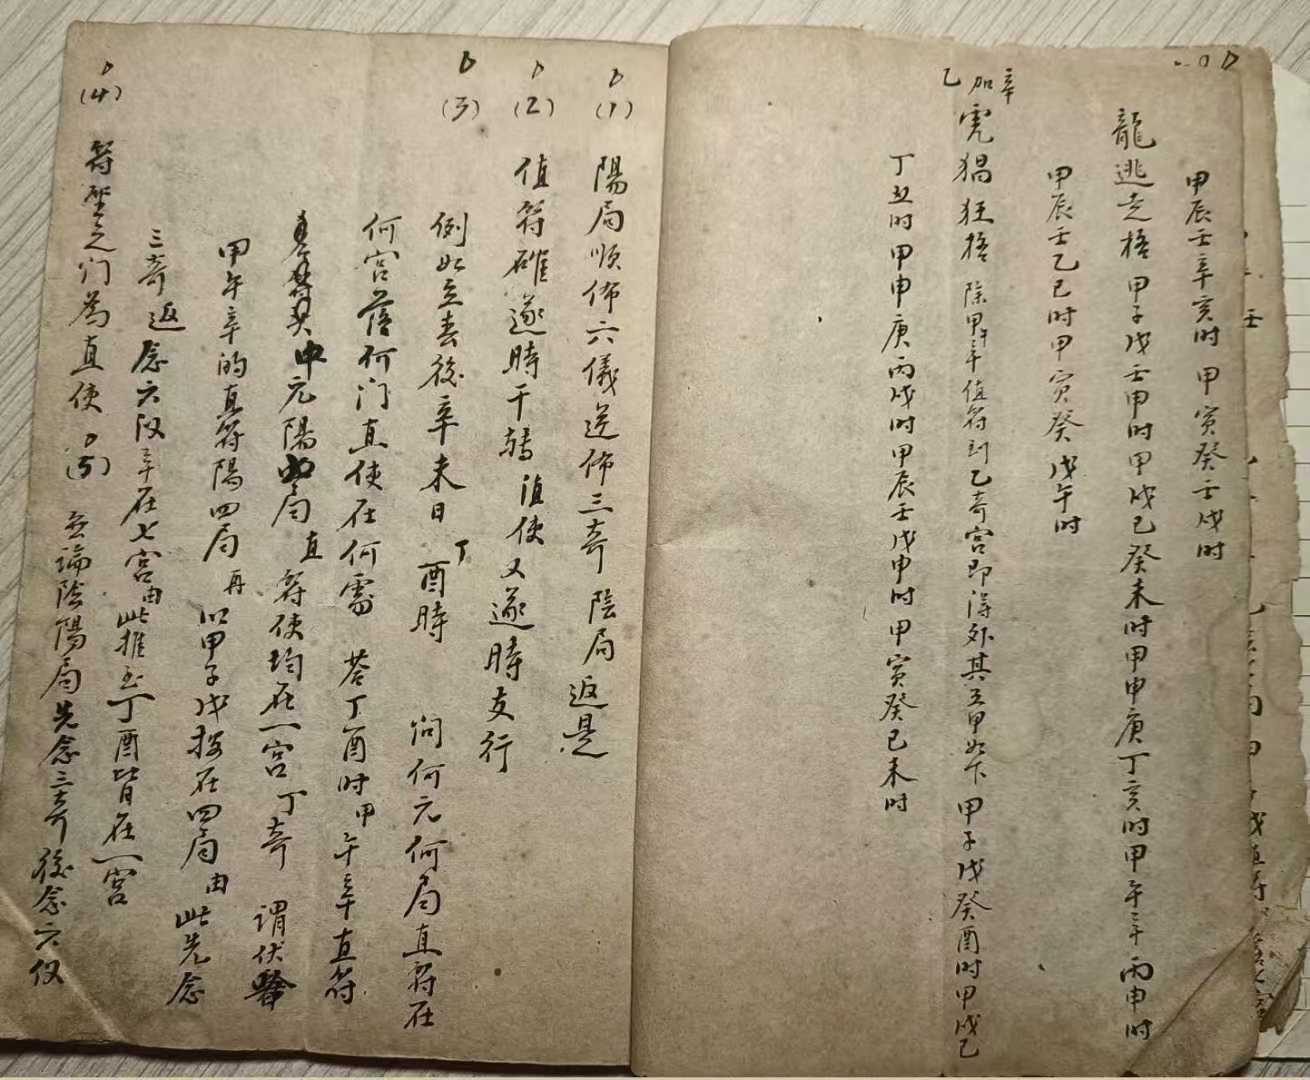 甲辰壬辛亥时 甲寅癸壬戌时
龍逃走格 甲子戊壬申时甲戌己癸未时甲申庚丁亥时甲午辛丙申时
甲辰壬乙巳时甲寅癸戊午时
辛加乙
虎猖狂格 除甲午辛值符到乙奇宫即得外其五甲如下 甲子戊癸酉时甲戌己
丁丑时甲申庚丙戌时甲辰壬戊申时甲寅癸己未时
(1) 陽局順佈六儀逆佈三奇 陰局返是
(2) 值符確遂時干轉 值使又遂時支行
(3) 例如立春後辛未日丁酉時 问何元何局直符在
何宫落何门直使在何處 荅丁酉时甲午辛直符
中元陽局直符使均在一宫丁奇 謂伏
甲午辛的直符陽四局再以甲子戊按在四局由此先念
三奇返念六仪辛在七宫由此推至丁酉皆在一宫
(4) 符坐之门為直使 (5) 無論陰陽局先念三奇後念六仪